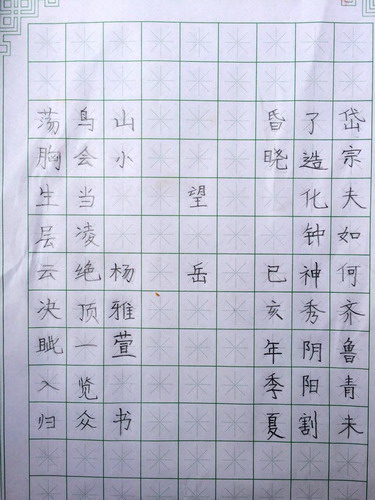 岱宗夫如何齐鲁青未
了造化钟神秀阴阳割
昏晓 已亥年季夏
望岳
荡胸生层云决眦入归
鸟会当凌绝顶一览众
山小 杨雅萱书